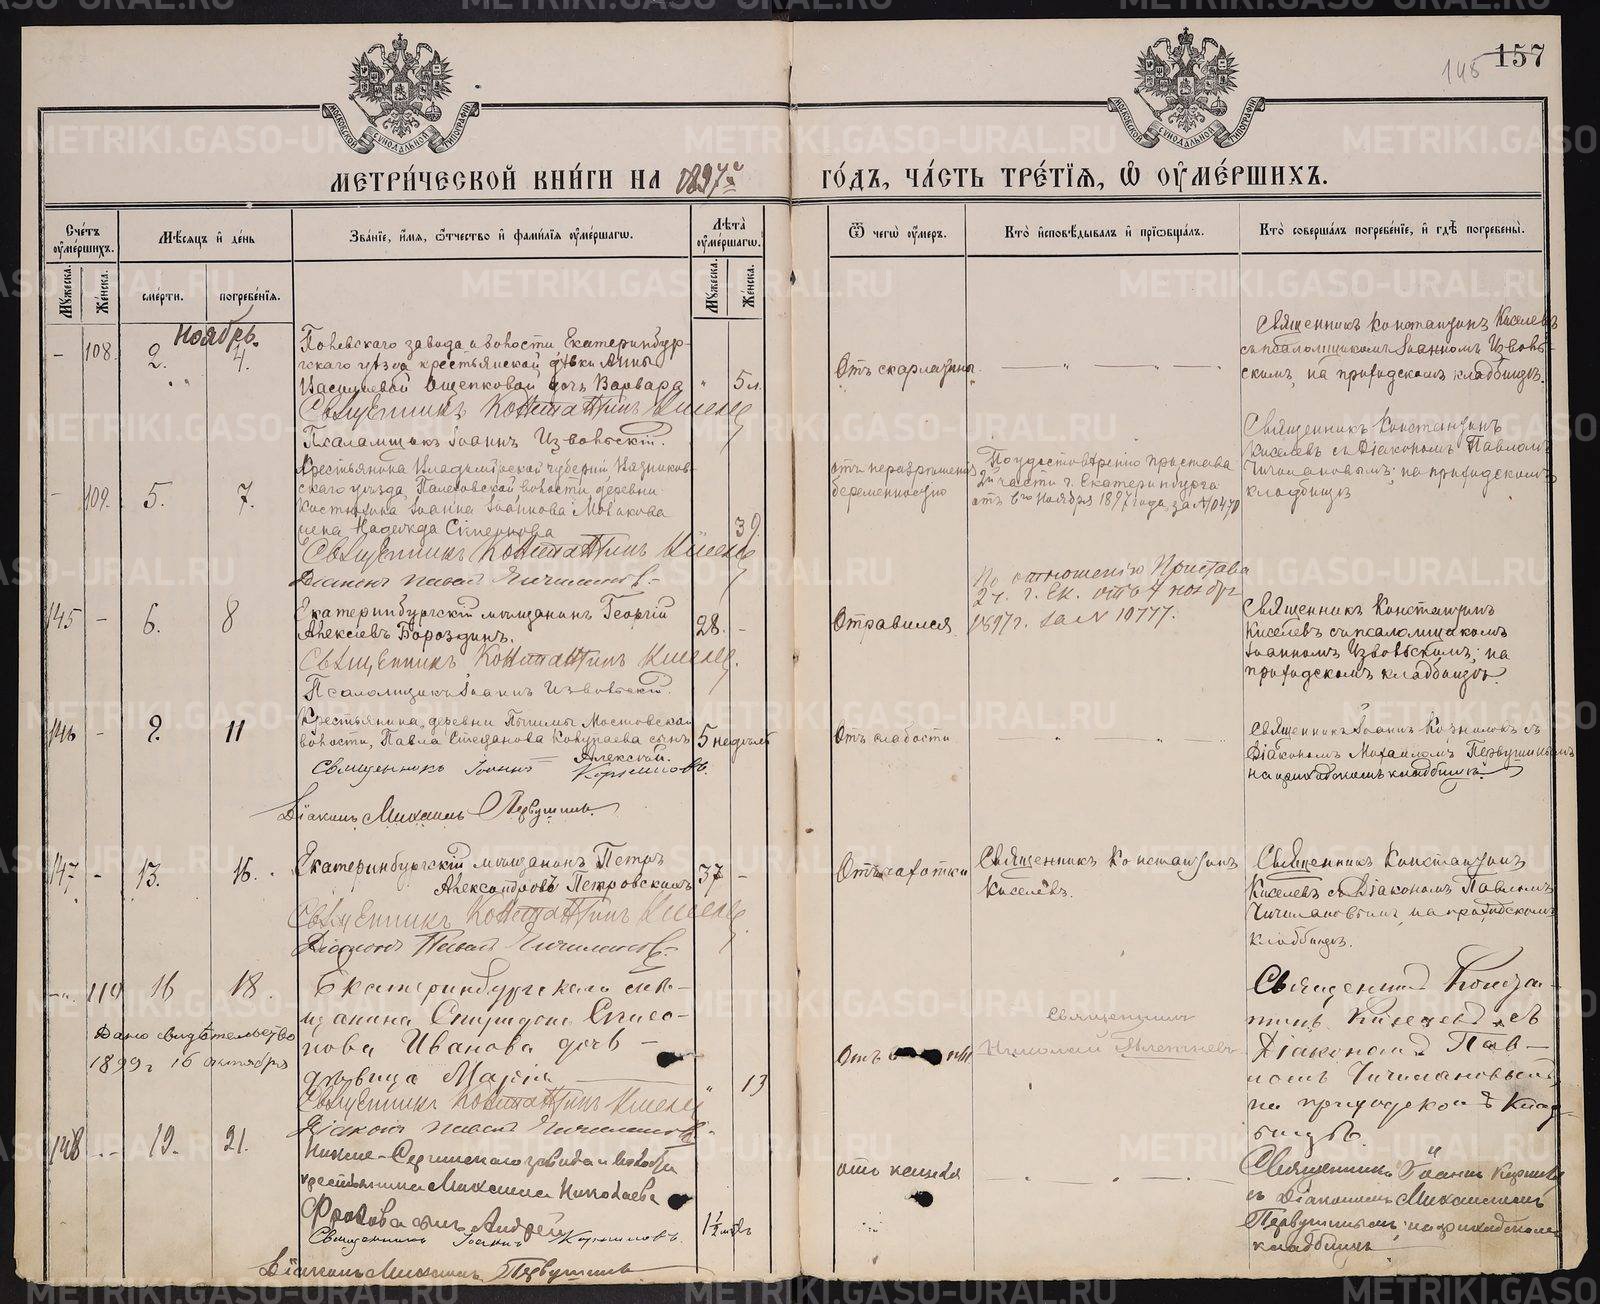 145 157
МЕТРИ́ЧЕСКОЙ КНИ́ГИ НА 1897й ГО́ДЪ, ЧА́СТЬ ТРЕ́ТІЯ, Ѿ ОУ҆МЕ́РШИХЪ.
Сче́тъ оу҆ме́ршихъ.
Мꙋжеска.
Же́нска.
Мѣ́сяцъ и҆ де́нь
сме́рти.
погребе́нїя.
Зва́нїе, и҆́мя, ѻ҆́тчество и҆ фами́лїя оу҆ме́ршагѡ.
Лѣ́та оу҆ме́ршагѡ.
Мꙋжеска.
Же́нска.
Ѿ чегѡ̀ оу҆ме́ръ.
Кто̀ и҆сповѣ́дывалъ и҆ прїѡбща́лъ.
Кто̀ соверша́лъ погребе́нїе, и҆ гдѣ̀ погребены̀.
Ноябрь.
– 108. 2. 4.
завода и волости Екатеринбург-
скаго уѣзда крестьянской дѣвки Анны
Васильевой Ощепковой дочь Варвара " 5 л.
Священникъ Константинъ Киселевъ
Псаломщикъ Іоаннъ
Отъ скарлатины.
Священникъ Константинъ Киселевъ
съ псаломщикомъ Іоанномъ
на приходскомъ кладбищѣ.
– 109. 5. 7.
Крестьянина Владимірской губерніи Вязников-
скаго уѣзда, Палеховской волости деревни
Іоанна Іоаннова
жена Надежда 39.
Священникъ Константинъ Киселевъ
Діаконъ Павелъ
беременностію
По удостовѣренію пристава
2й части г. Екатеринбурга
отъ 6го ноября 1897 года, за № 10470
Священникъ Константинъ
Киселевъ съ Діакономъ Павломъ
на приходскомъ
кладбищѣ
145 – 6. 8
Екатеринбургскій мѣщанинъ Георгій
Алексѣевъ Бороздинъ. 28. –
Священникъ Константинъ Киселевъ.
Псаломщикъ Іоаннъ
Отравился
По отношенію Пристава
2 ч. г. Ек. отъ 7 ноября
1897 г. за № 10777.
Священникъ Константинъ
Киселевъ съ псаломщикомъ
Іоанномъ на
приходскомъ кладбищѣ.
146 – 9. 11
Крестьянина, деревни Пышмы Мостовской
волости, Павла Стефанова сынъ 5 недѣль
Алексѣй.
Священникъ Іоаннъ
Діаконъ Михаилъ Первушинъ
Отъ слабости
Священникъ Іоаннъ съ
Діакономъ Михаиломъ Первушинымъ
на приходскомъ кладбищѣ.
147 – 13. 15.
Екатеринбургскій мѣщанинъ Петръ
Александровъ Петровскихъ 37 –
Священникъ Константинъ Киселевъ
Діаконъ Павелъ
Отъ чахотки
Священникъ Константинъ
Киселевъ.
Священникъ Константинъ
Киселевъ съ Діакономъ Павломъ
на приходскомъ
кладбищѣ.
110 16 18.
Дано свидѣтельство
1899 г 16 октября
Екатеринбургскаго мѣ-
щанина Спиридона
Иванова дочь –
дѣвица Марія " 13
Священникъ Константинъ Киселевъ
Діаконъ Павелъ
Отъ
Священникъ
Николай
Священникъ Конста-
нтинъ Киселевъ съ
Діакономъ Пав-
ломъ
на приходскомъ клад-
бищѣ.
148 – 19. 21.
Нижне-Сергинскаго завода и волости
крестьянина Михаила Николаева
Фролова сынъ Андрей 1½ мѣс.
Священникъ Іоаннъ
Діаконъ Михаилъ Первушинъ
отъ кашля
Священникъ Іоаннъ
съ Діакономъ Михаиломъ
Первушинымъ, на приходскомъ
кладбищѣ
METRIKI.GASO-URAL.RU